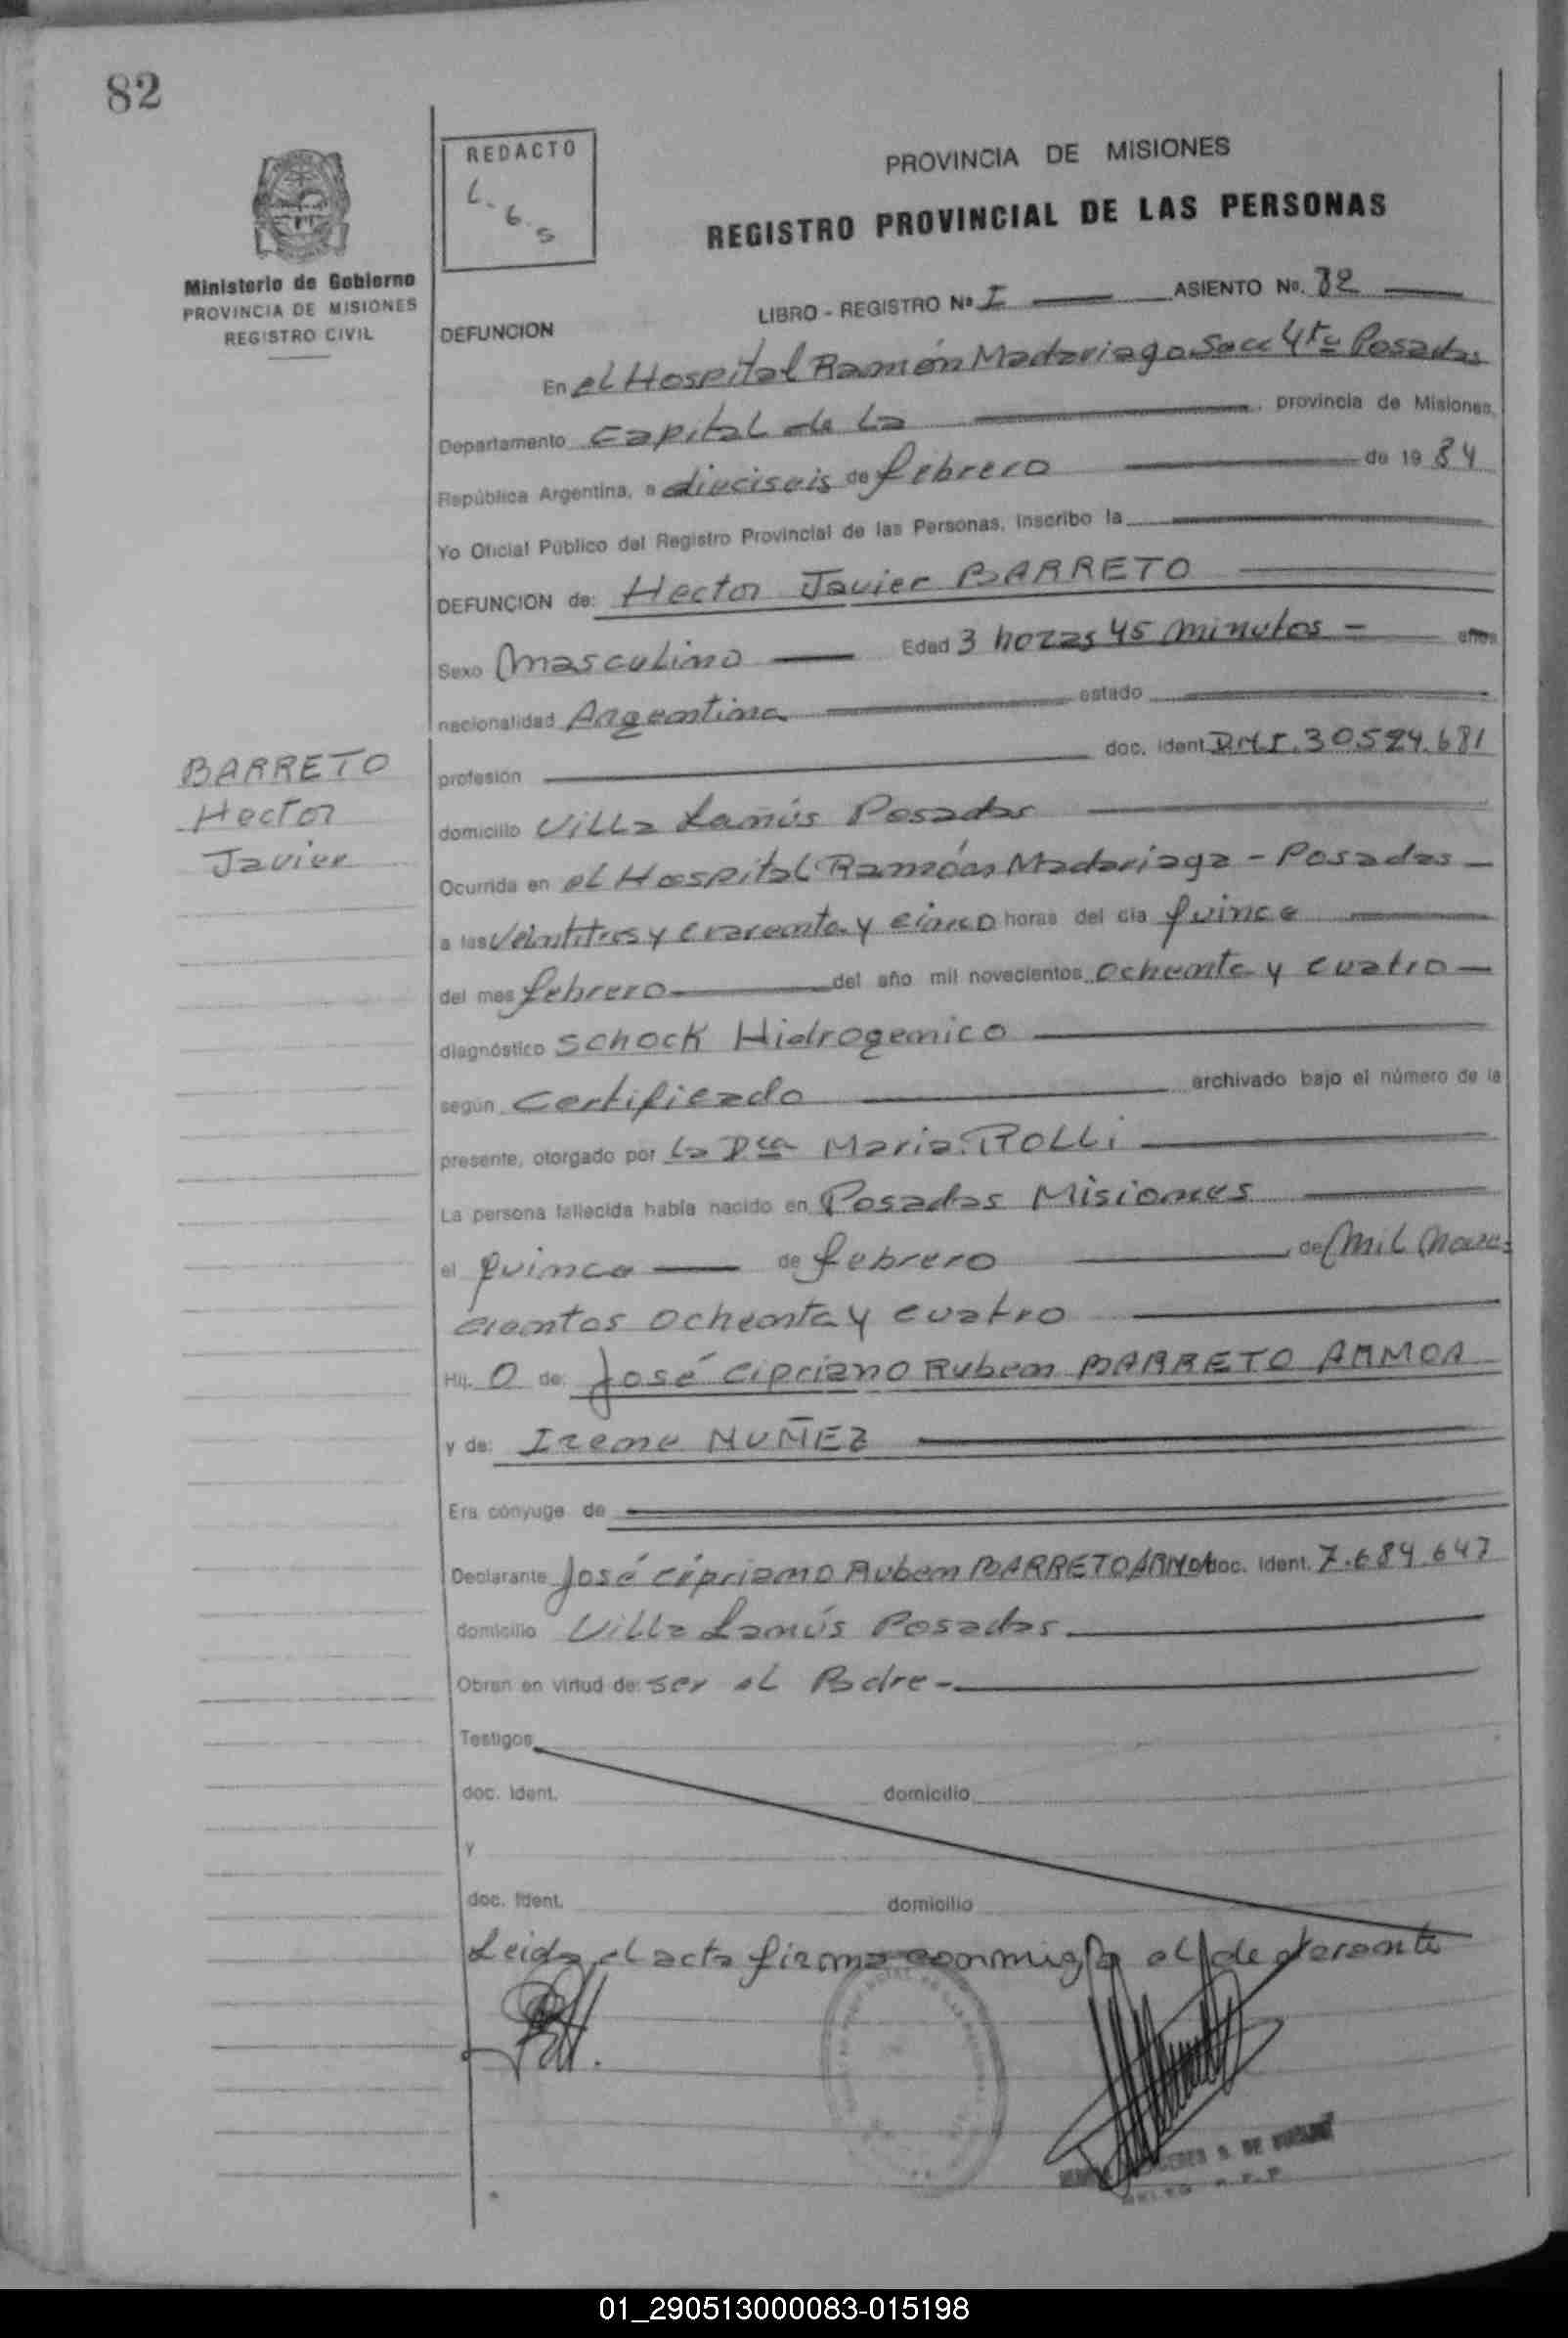 82
REDACTO
L. G. S
PROVINCIA DE MISIONES
REGISTRO PROVINCIAL DE LAS PERSONAS
Ministerio de Gobierno
PROVINCIA DE MISIONES
REGISTRO CIVIL
LIBRO - REGISTRO Nº I ASIENTO No. 82
DEFUNCION
En el Hospital Ramón Madariaga Secc 4ta Posadas
Departamento Capital de La provincia de Misiones,
República Argentina, a dieciseis de febrero de 19 84
Yo Oficial Público del Registro Provincial de las Personas, inscribo la
DEFUNCION de: Hector Javier BARRETO
Sexo Masculino Edad 3 horas 45 minutos - años
nacionalidad Argentina estado
BARRETO
Hector
Javier
profesión doc. ident. D.N.I. 30.524.681
domicilio Villa Lanús Posadas
Ocurrida en el Hospital Ramón Madariaga - Posadas
a las veintitres y cuarenta y cinco horas del día quince
del mes febrero del año mil novecientos ochenta y cuatro
diagnóstico Schock Hidrogenico
según certificado archivado bajo el número de la
presente, otorgado por La Dra Maria ROLLi
La persona fallecida había nacido en Posadas Misiones
el quince de febrero de mil nove-
cientos ochenta y cuatro
Hij. O de: José Cipriano Ruben BARRETO
y de: Irene NUÑEZ
Era cónyuge de
Declarante José Cipriano Ruben BARRETO doc. ident. 7.684.647
domicilio Villa Lanús Posadas
Obran en virtud de: ser el Padre -
Testigos
doc. ident. domicilio
y
doc. ident. domicilio
Leida el acta firma conmigo el declarante
01_290513000083-015198